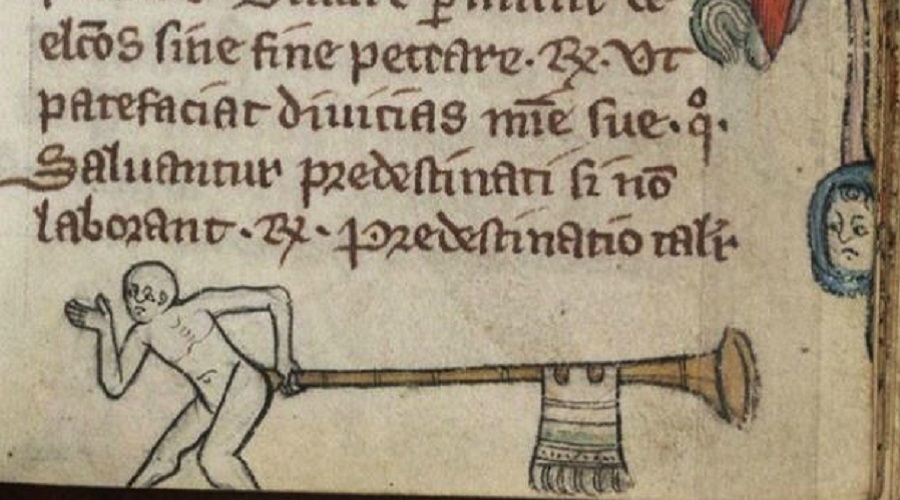 elcōs sine fine peccare. R̷. Ut
patefaciat diuicias mīe sue. q̊.
Saluantur predestinati si nō
laborant. R̷. Predestinatio tali